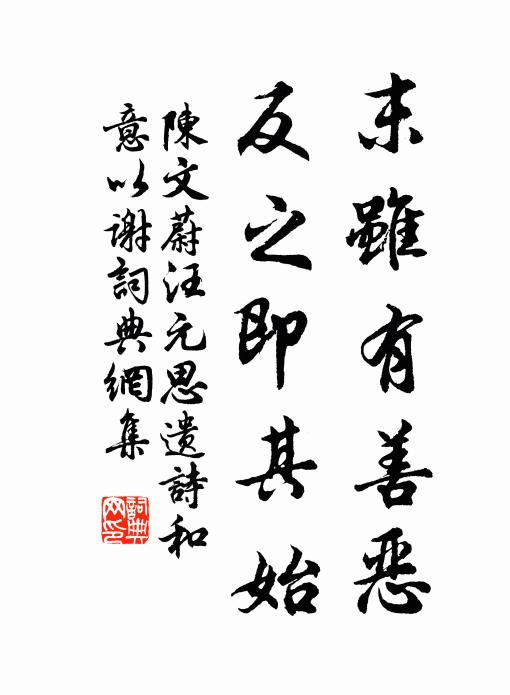 末雖有善惡
反之即其始
陳文蔚汪元思遺詩和
意以謝詞典網集
詞典
网印